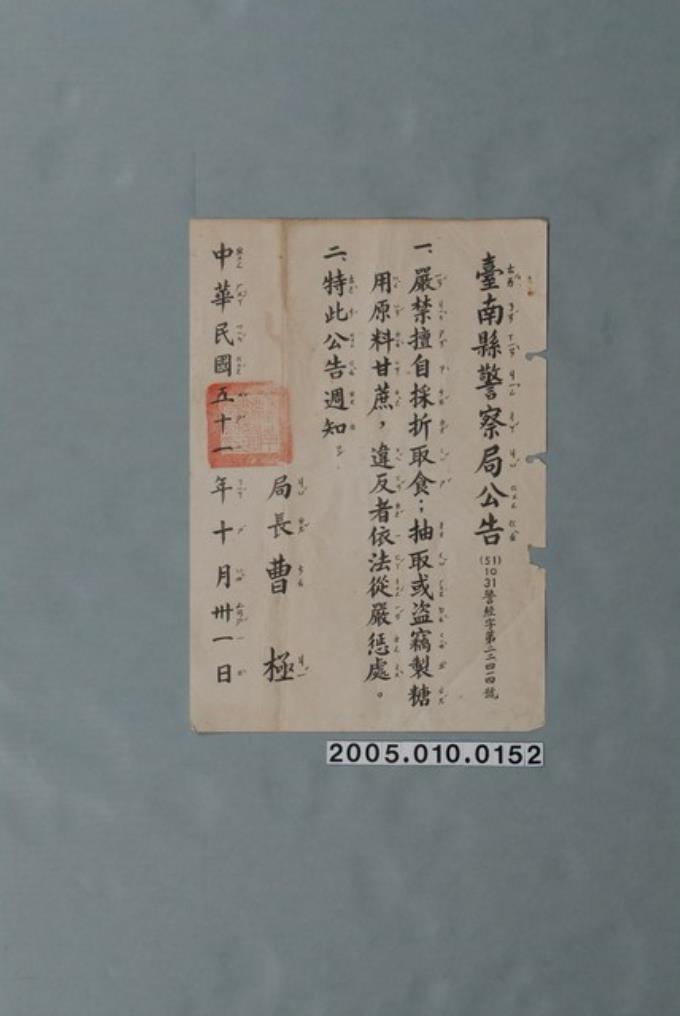 臺南縣警察局公告
(51)1031警經字第二二四一四號
一、嚴禁擅自採折取食；抽取或盜竊製糖
用原料甘蔗，違反者依法從嚴懲處。
二、特此公告週知
局長曹 極
中華民國五十一年十月卅一日
2005.010.0152